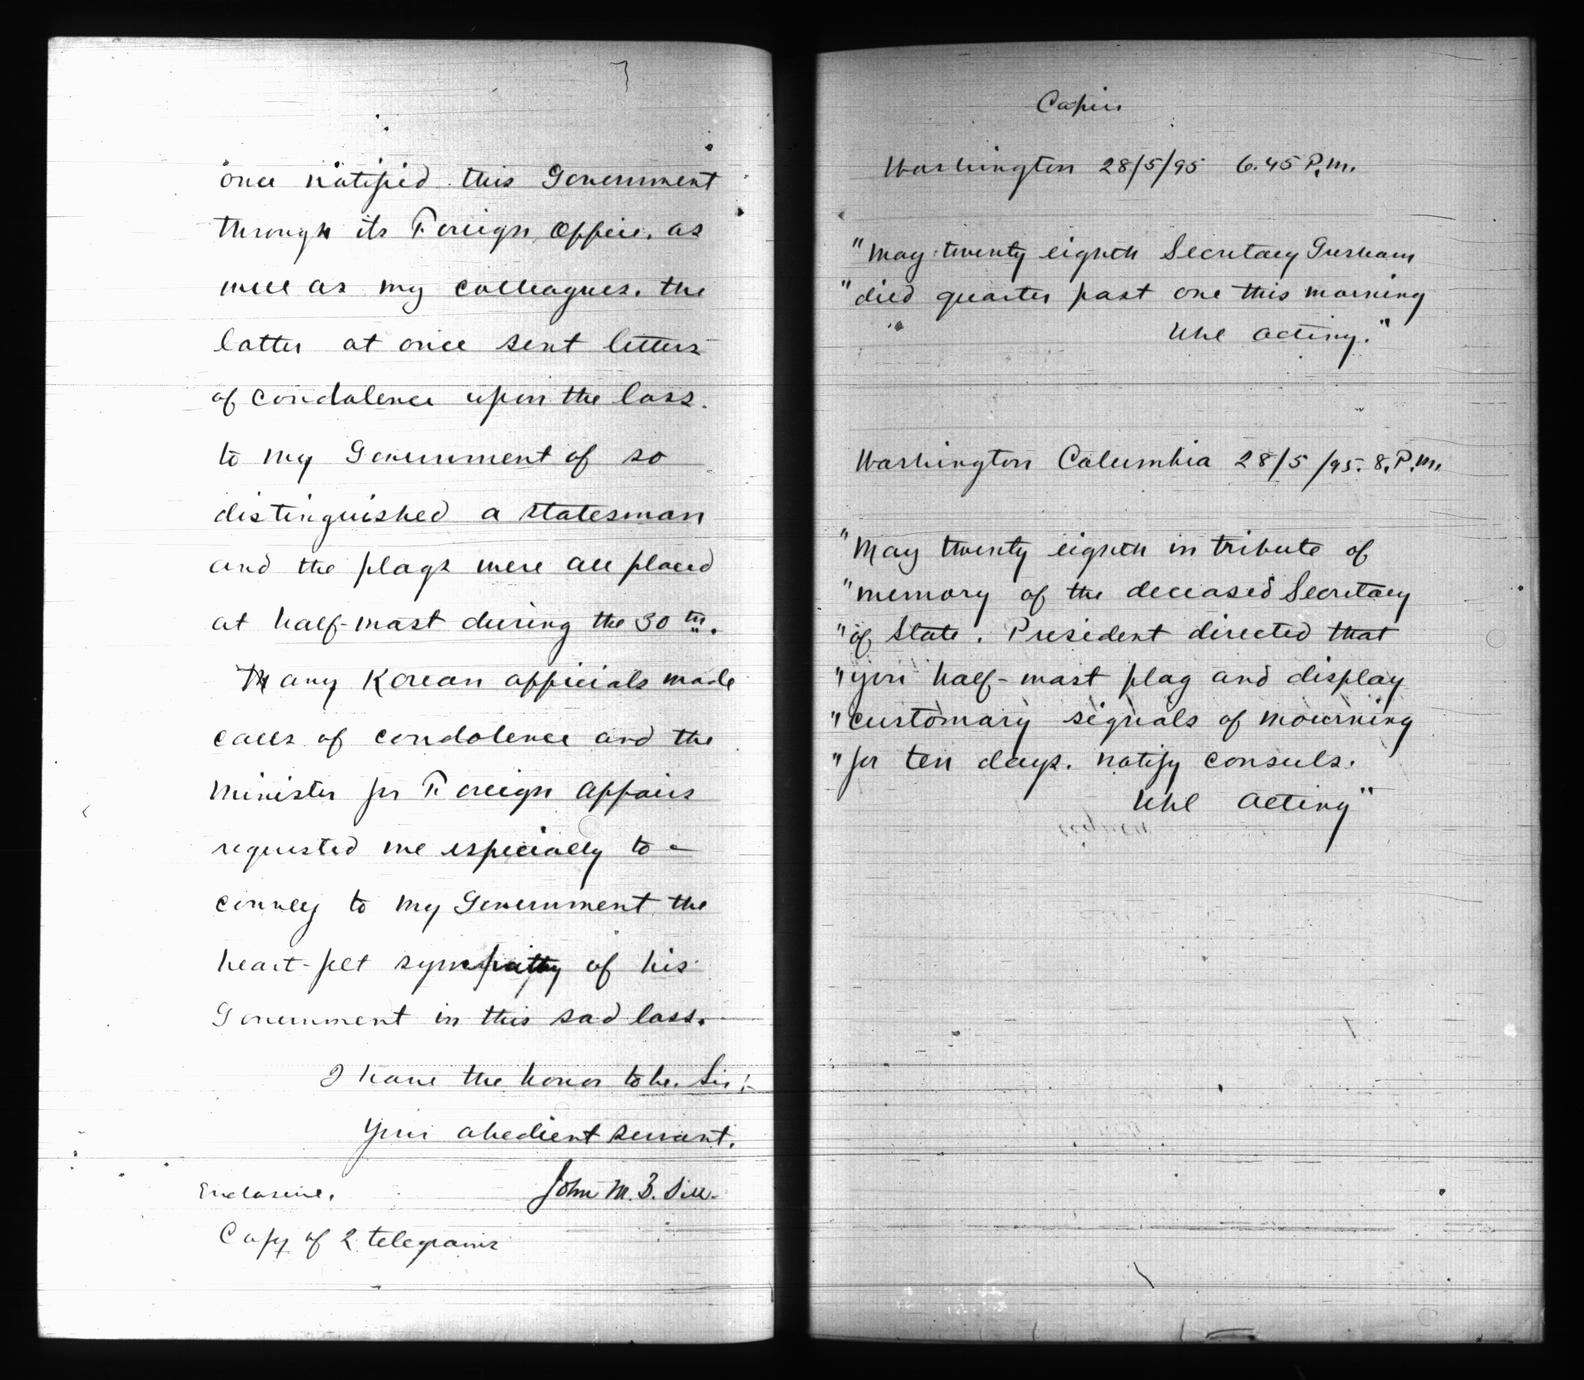 once notified this Government
through its Foreign Office, as
well as my colleagues. the
latter at once sent letters
of condolence upon the loss
to my Government of so
distinguished a statesman
and the flags were all placed
at half-mast during the 30th.
Many Korean officials made
calls of condolence and the
Minister for Foreign Affairs
requested me especially to
convey to my Government the
heart-felt sympathy of his
Government in this sad loss.
I have the honor to be. Sir:
Your obedient servant.
John M. B. Sill.
Enclosure.
Copy of 2 telegrams
Copies
Washington 28/5/95 6.45 P.M.
"May twenty eighth Secretary Gresham
"died quarter past one this morning
" Uhl Acting."
Washington Columbia 28/5/95. 8. P.M.
"May twenty eighth in tribute of
"memory of the deceased Secretary
"of State. President directed that
"you half-mast flag and display
"customary signals of mourning
"for ten days. notify consuls.
Uhl Acting"